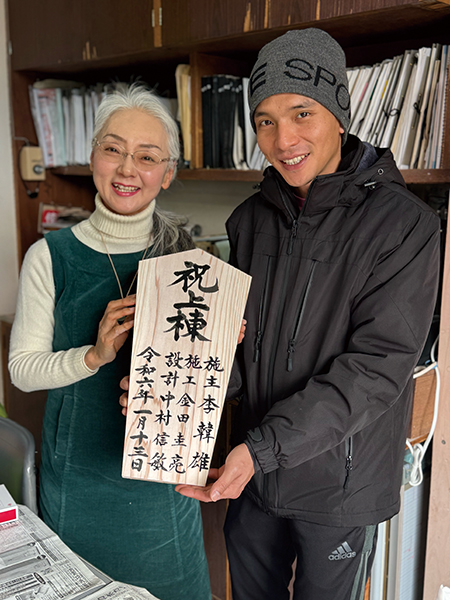 祝上棟
施主 李韓雄
施工 金田圭亮
設計 中村信敏
令和六年一月十三日
E SPO
adidas